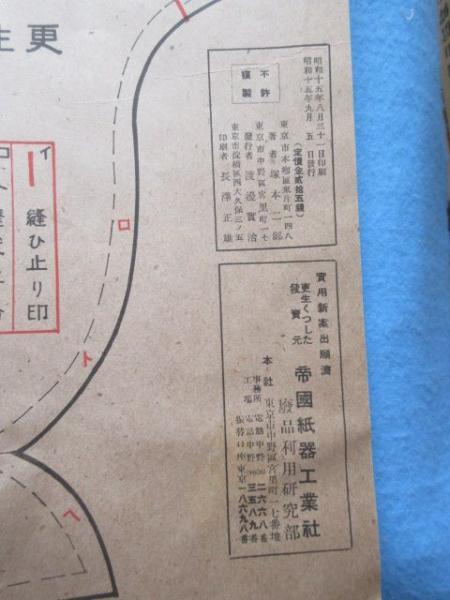 更生
昭和十五年八月三十一日印刷
昭和十五年九月五日發行
不許
複製
(定價金貳拾五錢)
東京市本郷區東片町一四八
著者 塚本二郎
東京市中野區宮里町一七
發行者 渡邊實治
東京市淀橋區西大久保三ノ五
印刷者 長澤正雄
實用新案出願濟
更生くつした
發賣元
帝國紙器工業社
廢品利用研究部
本社 東京市中野區宮里町一七番地
事務所 電話中野 二六六八番
工場 電話中野 三五八九番
振替口座東京一八六九八番
イ
縫ひ止り印
ロ
ロ
ト
ヘ